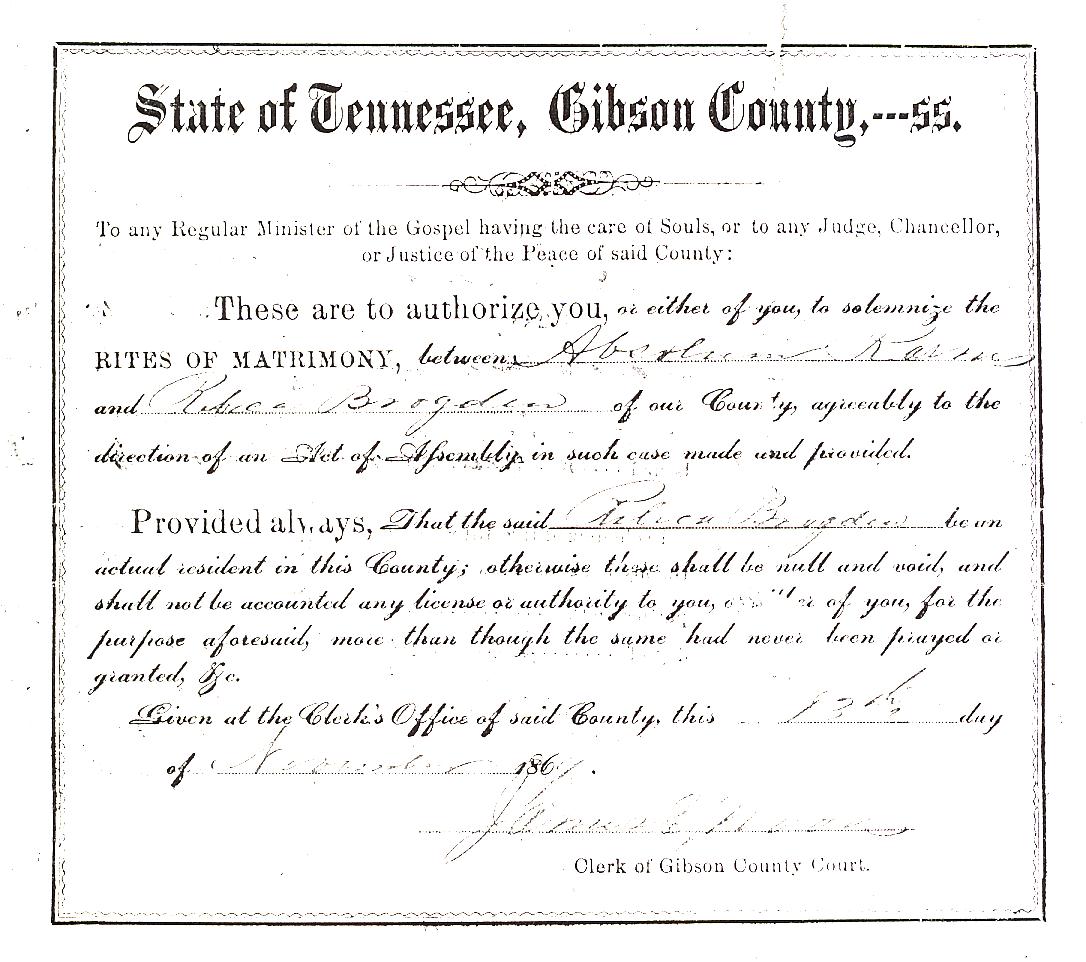 State of Tennessee, Gibson County,---ss.
To any Regular Minister of the Gospel having the care of Souls, or to any Judge, Chancellor,
or Justice of the Peace of said County:
These are to authorize you, or either of you, to solemnize the
RITES OF MATRIMONY, between Absolum
and Rebeca Brogden of our County, agreeably to the
direction of an Act of Assembly, in such case made and provided.
Provided always, That the said Rebeca Brogden be an
actual resident in this County; otherwise these shall be null and void, and
shall not be accounted any license or authority to you, or either of you, for the
purpose aforesaid, more than though the same had never been prayed or
granted, &c.
Given at the Clerk's Office of said County, this 13th day
of November 186
Clerk of Gibson County Court.